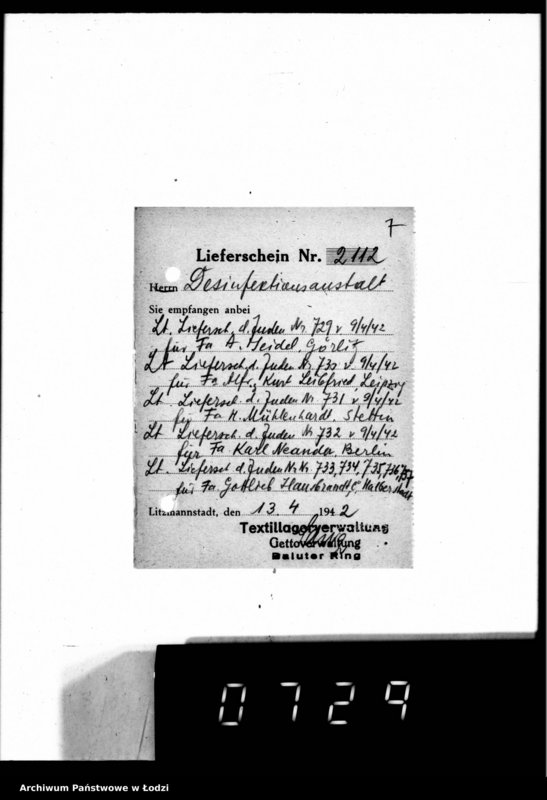 7
Lieferschein Nr. 2112
Herrn Desinfektionsanstalt
Sie empfangen anbei
Lt. Liefersch. d. Juden Nr. 729 v 9/4/42
für Fa A. Heidel, Görlitz
Lt Liefersch. d. Juden Nr. 730 v 9/4/42
für Fa Alfr. Kurt Leibfried, Leipzig
Lt. Liefersch. d. Juden Nr 731 v 9/4/42
für Fa H. Mühlenhardt, Stettin
Lt Liefersch. d. Juden Nr 732 v 9/4/42
für Fa Karl Neander, Berlin
Lt. Liefersch d. Juden Nr. Nr. 733, 734, 735, 736, 737
für Fa. Gottlieb Hausbrandt, Halberstadt
Litzmannstadt, den 13. 4 1942
Textillagerverwaltung
Gettoverwaltung
Baluter Ring
0729
Archiwum Państwowe w Łodzi